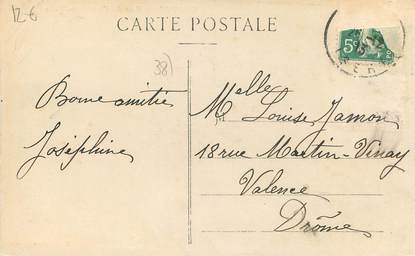 12 €
CARTE POSTALE
5c
38)
Bonne amitié
Joséphine
Melle Louise Jamon
M
18 rue Martin-Vinay
Valence
Drôme